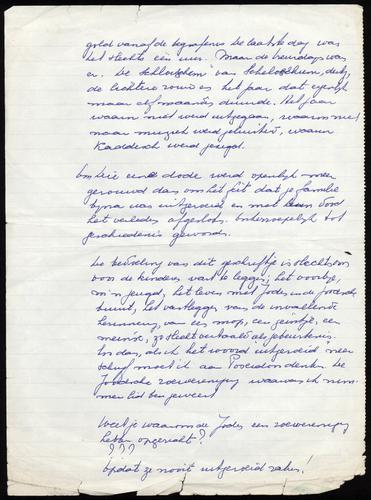 geld vanaf de begrafenis. De laatste dag was
het slechts een uur. Maar de treurdag was
er. De "Schlousjem" van Scheloschiem, dertig,
de lichtere rouw en het jaar dat eigenlijk
maar elf maanden duurde. Het jaar
waarin niet werd uitgegaan, waarin niet
naar muziek werd geluisterd, waarin
Kaddisch werd gezegd.
Om die ene dode werd openlijk meer
gerouwd dan om het feit dat je familie
bijna was uitgeroeid en met hen
het verleden afgesloten. Onherroepelijk tot
geschiedenis geworden.
De bedoeling van dit geschriftje is slechts om
voor de kinderen vast te leggen; het voorbije,
m'n jeugd, het leven met Joden in de Joodsche
buurt, het vastleggen van de invallende
herinnering, van een mop, een geintje, een
mensje, zo slecht vertaald als gebeurtenis.
En dan, als ik het woord "uitgeroeid" neer
schrijf moet ik aan Poseidon denken. De
Joodsche roeivereniging waarvan ik nim-
mer lid ben geweest
Weet je waarom de Joden een roeivereniging
hebben opgericht?
???
Opdat ze nooit uitgeroeid raken!